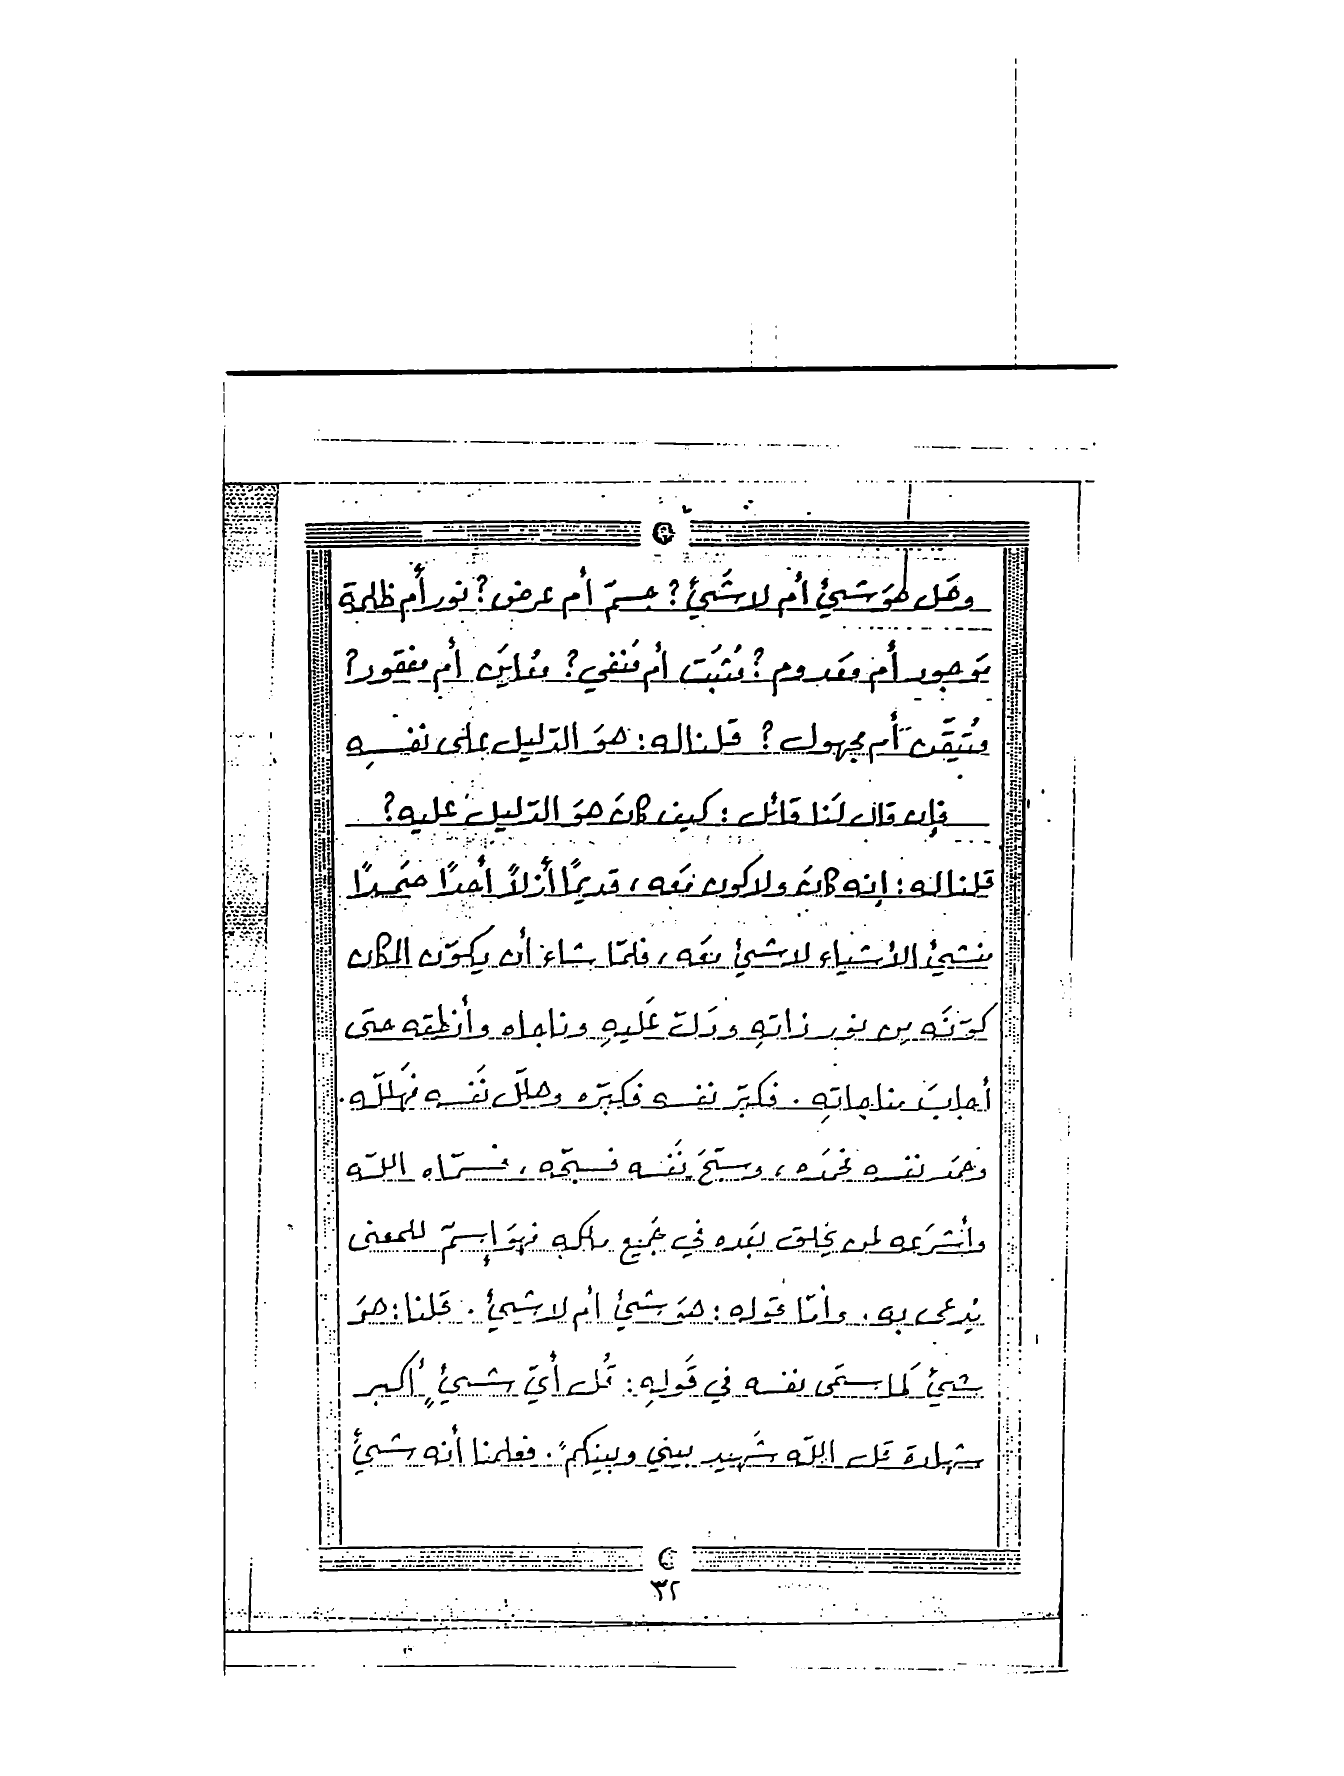 وهَل هوَ شَيئ أم لا شَيئ؟ جسمٌ أم عرض؟ نور أم ظلمة
مَوجود أم معَدوم؟ مُثبَت أم مَنفي؟ معُايَن أم مفقود؟
مُتيَقّن أم مجهول؟ قَلنا له: هوَ الدّليل على نفسهِ
فإن قال لَنا قَائل: كيف كانَ هوَ الدّليل عليه؟
قلنا له: إنه كانَ ولا كون مَعه، قديمًا أزلاً أحدًا صَمَدًا
منشئ الأشياء لا شيئ معَه، فلمّا شاء أن يكوّن المكان
كوّنَه من نور ذاتهِ ودَلّ عَليهِ وناجاه وأنطقه حتَى
أجابَ مناجاتهِ. فكبّر نفسه فكبّره وهلّل نَفسه فهَللّه.
وحمَد نفسه فحمَده، وسبّحَ نَفسه فسبّحه، فسمّاه اللّه
وأشرَعه لمن يَخلق بَعده في جَميع ملكهِ فهوَ إسمٌ للمعنى
يُدعى به. وأمّا قوله: هوَ شيئ أم لا شيئ. قَلنا: هوَ
شيئ كَما سمّى نفسه في قَولهِ: قُل أيّ شيئٍ أُكبر
شهادة قَل اللّه شَهيد بيني وبينكم". فعلمنا أنه شيئ
٣٢